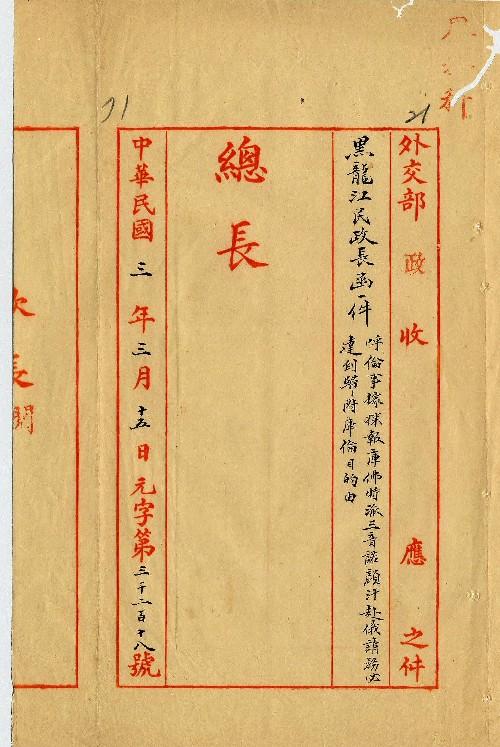 外交部 政 收 應 之件
黑龍江民政長函一件
呼倫事據探報庫佛特派三音諾顏汗赴俄請務必
達到歸附庫倫目的由
總長
中華民國三年三月十五日元字第三千二百十八號
次長閱
71
21